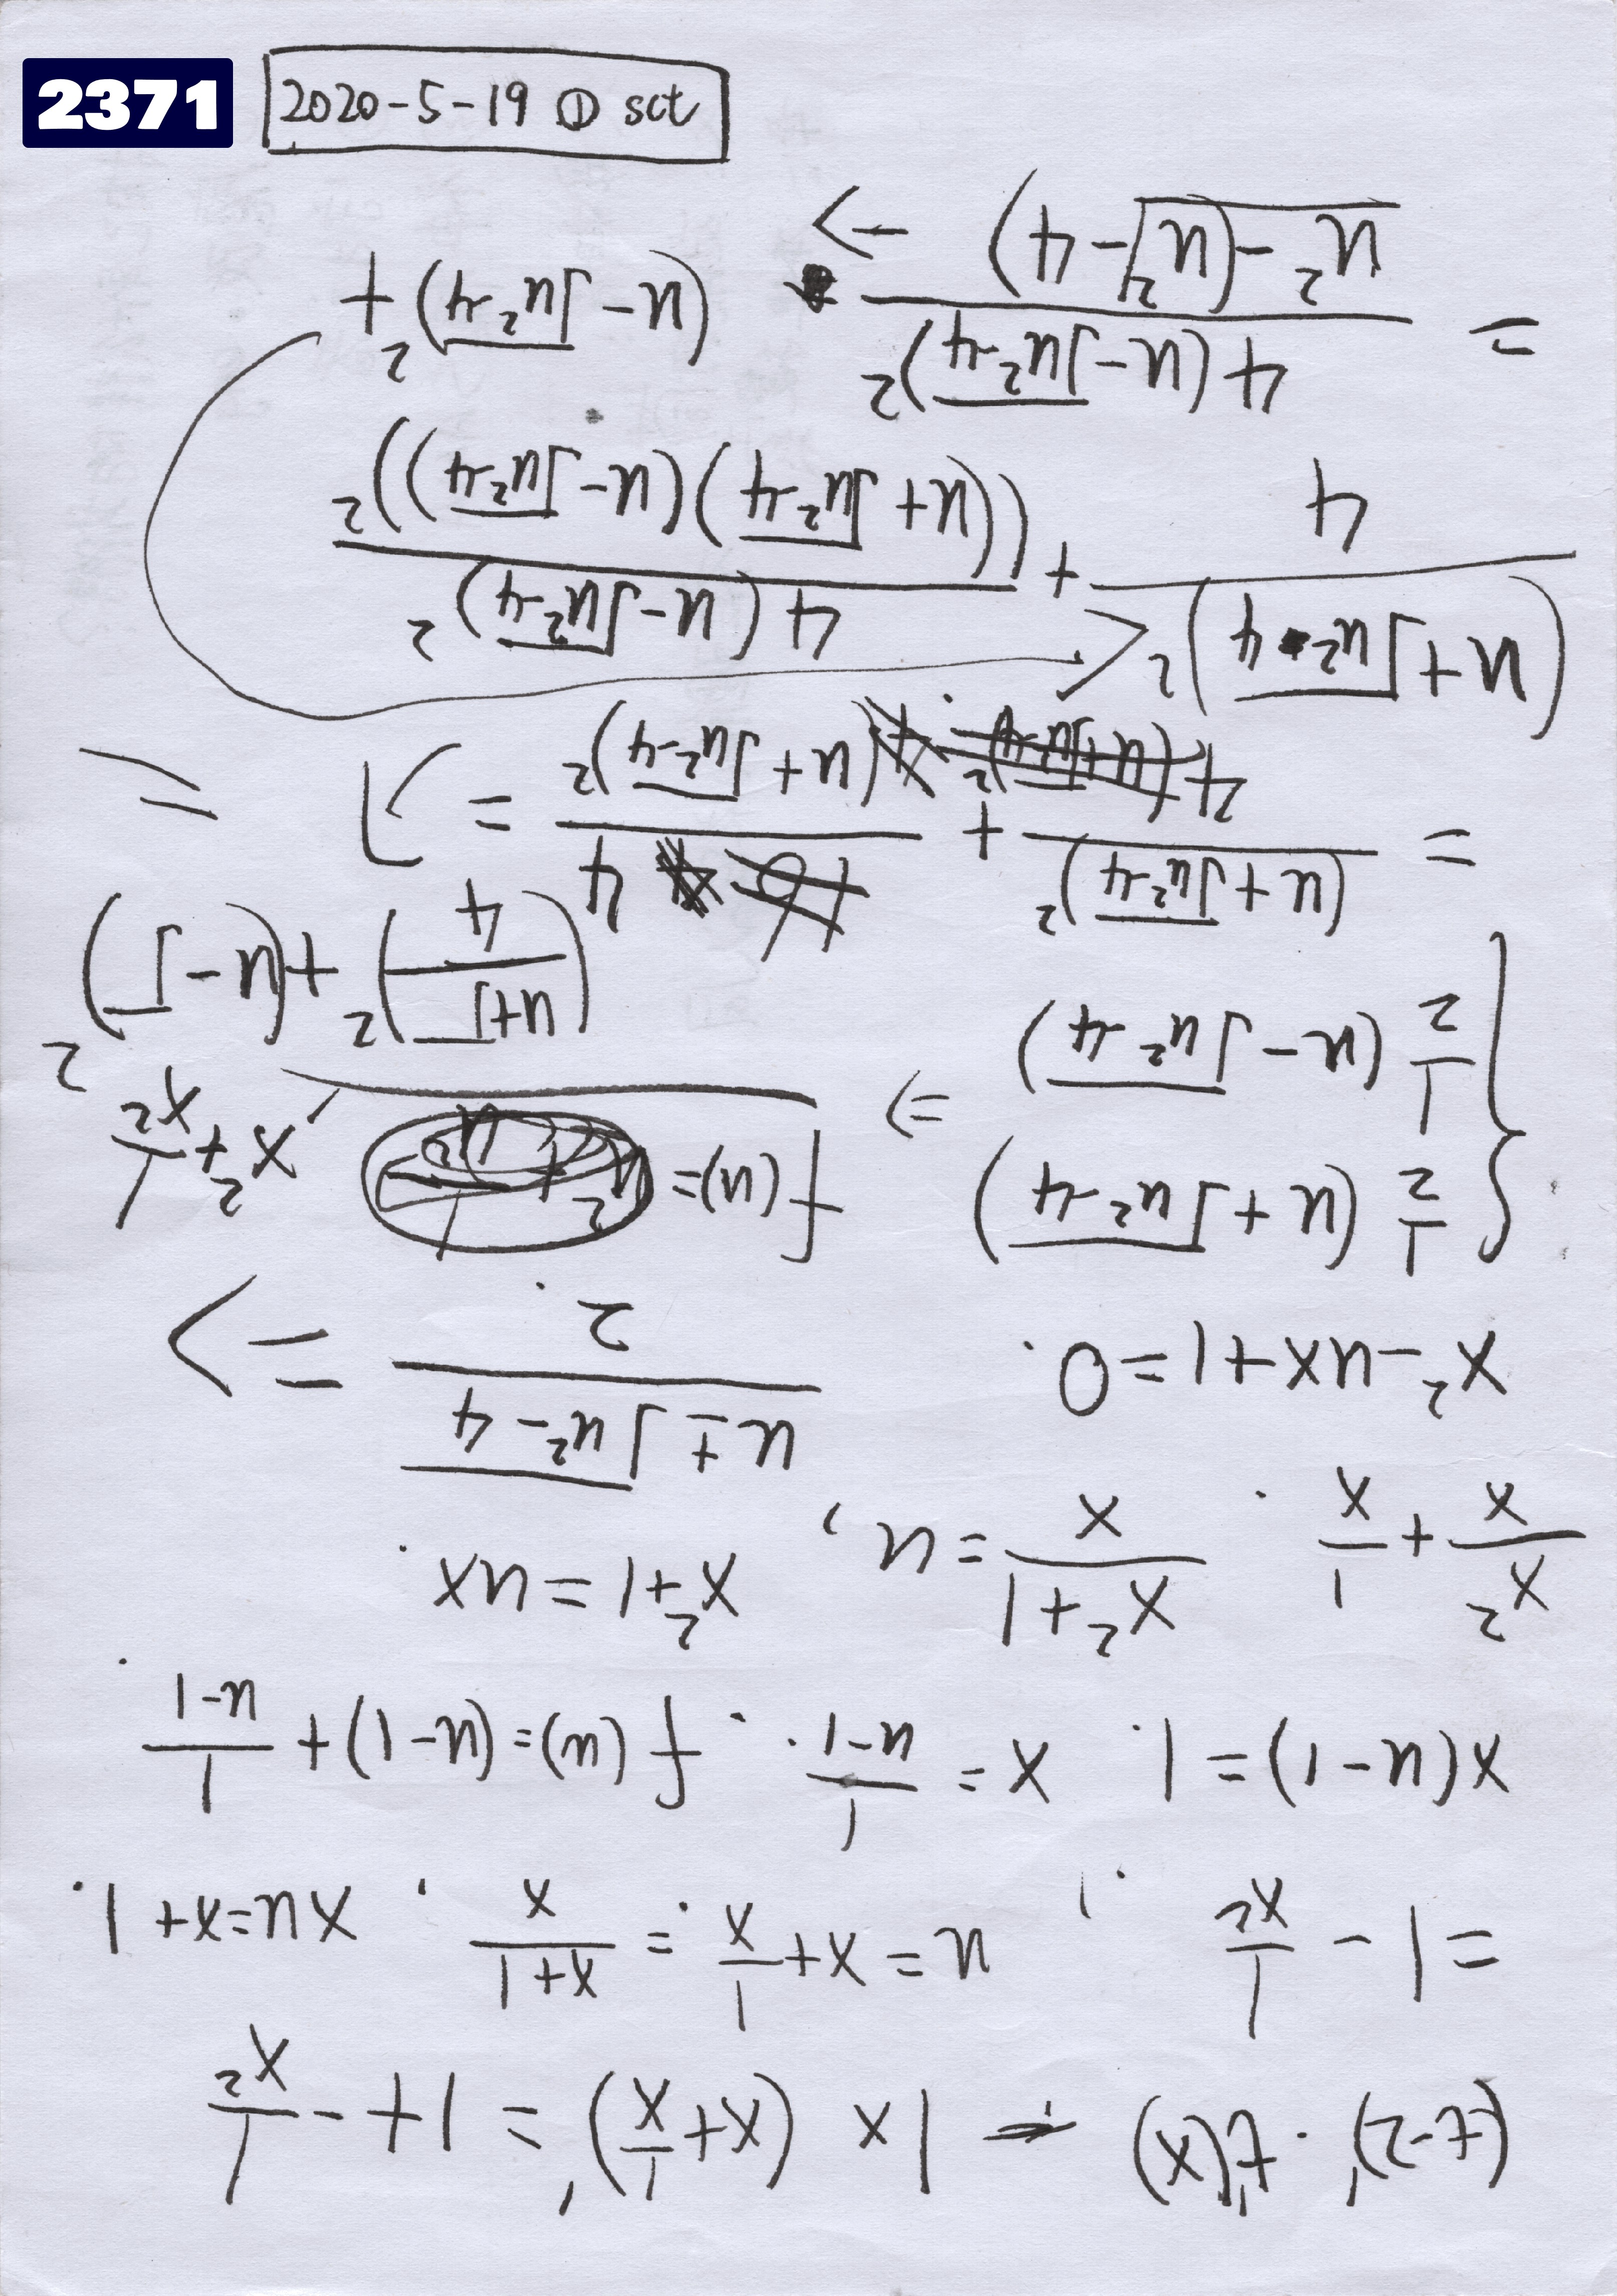 2371
2020-5-19 ① sct
(t-2)'·t'(x) → 1×(x+1/x)' = 1+-1/x²
=1-1/x², u=x+1/x=(x+1)/x, xu=x+1.
x(u-1)=1. x=1/(u-1). f(u)=(u-1)+1/(u-1).
x²/x+1/x. (x²+1)/x=u, x²+1=ux.
x²-ux+1=0. (u±√(u²-4))/2 =>
{ 1/2(u+√(u²-4))
f(u)= x²+1/x²
1/2(u-√(u²-4)) =>
((u+√)/4)²+(u-√)²
=(u+√(u²-4))²/4+4/(u+√(u²-4))²=
(u+√(u²-4))²/4+4(u-√(u²-4))²/((u+√(u²-4))(u-√(u²-4)))²
=4(u-√(u²-4))²/(u²-(u²-4)) → (u-√(u²-4))²+